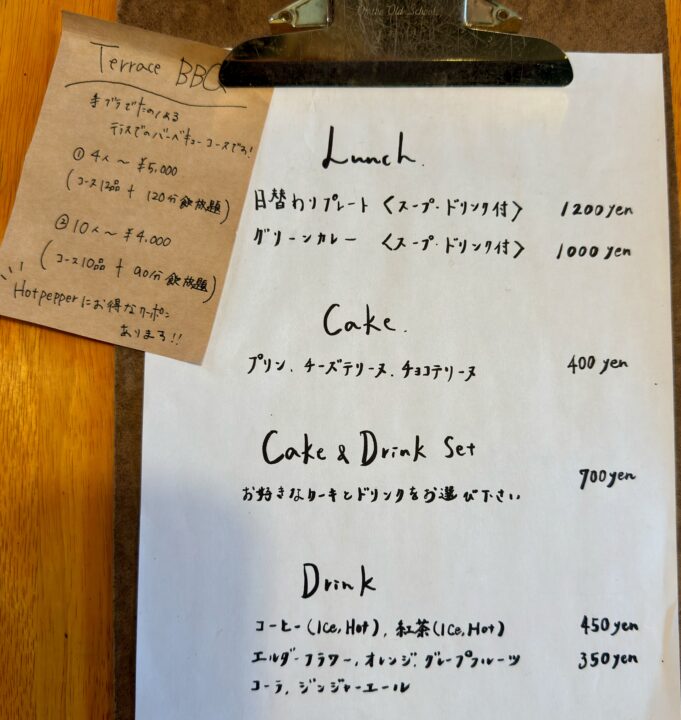 On the Old School.
Terrace BBQ
手ブラでたのしめる
テラスでのバーベキューコースです!
① 4人～ ¥5,000
(コース12品 + 120分飲放題)
② 10人～ ¥4,000
(コース10品 + 90分飲放題)
Hotpepperにお得なクーポン
あります!!
Lunch.
日替わりプレート 〈スープ・ドリンク付〉 1200yen
グリーンカレー 〈スープ・ドリンク付〉 1000yen
Cake.
プリン、チーズテリーヌ、チョコテリーヌ 400yen
Cake & Drink Set
700yen
お好きなケーキとドリンクをお選び下さい
Drink
コーヒー(Ice, Hot), 紅茶(Ice, Hot) 450yen
エルダーフラワー, オレンジ, グレープフルーツ 350yen
コーラ, ジンジャーエール